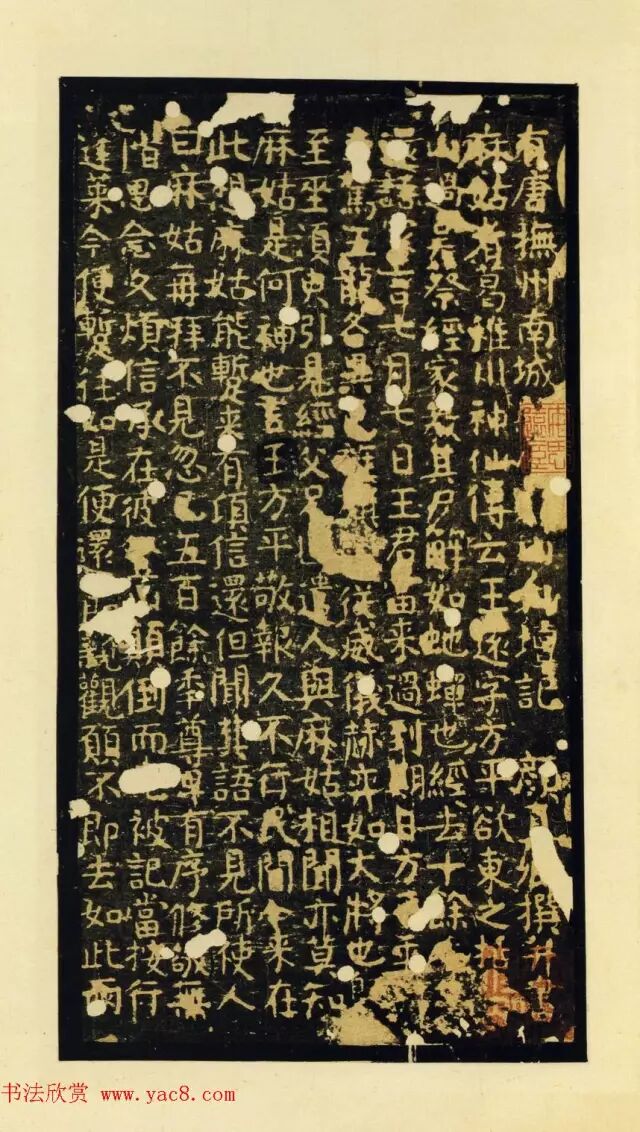 有唐撫州南城 山仙壇記 顏 撰并書
麻姑者葛稚川神仙傳云王遠字方平欲東之括
山過 蔡經家教其尸解如蛇蟬也經去十餘
還語 言七月七日王君當来過到期日方平
駕五龍各異 從威儀赫弈如大將也
至坐須臾引見經父兄 遣人與麻姑相聞亦莫知
麻姑是何神也言王方平敬報久不行民間今来在
此想麻姑能蹔来有頃信還但聞其語不見所使人
曰麻姑再拜不見忽已五百餘秊尊卑有序脩敬無
階思念久煩信承在彼 顛倒而先被記當按行
蓬萊今便蹔往如是便還 親觀願不即去如此兩
书法欣赏 www.yac8.com